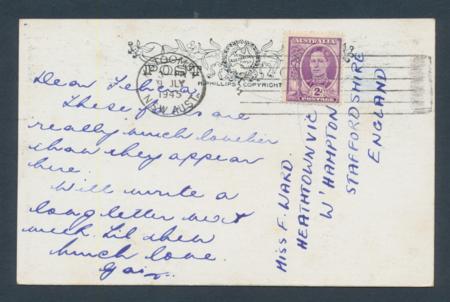 9 JLY
1945
N.S.W AUST
PHILLIPS COPYRIGHT
AUSTRALIA
2D
POSTAGE
Dear
These are
really much lovelier
than they appear
here.
Will write a
long letter next
week. Til then
much love.
MISS F. WARD.
HEATHTOWN VIC
W'HAMPTON
STAFFORDSHIRE
ENGLAND